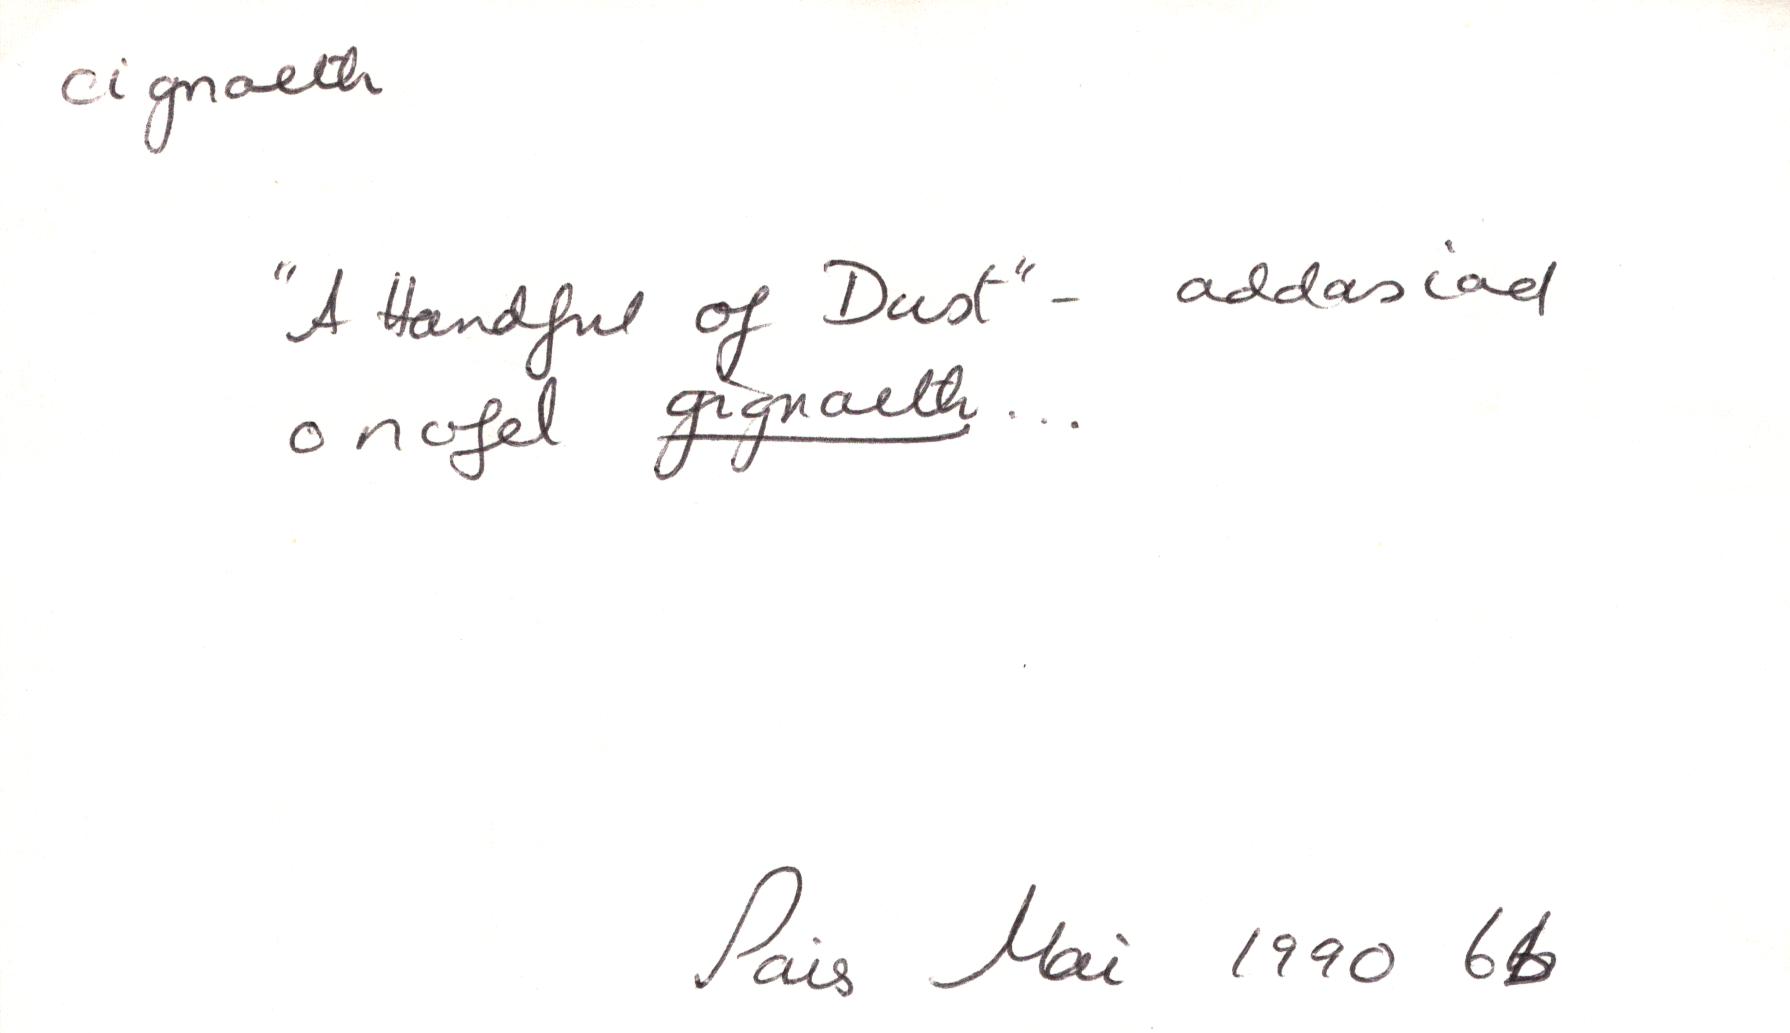 cignaeth
"A Handful of Dust" - addasiad
o nofel gignaeth...
Pais Mai 1990